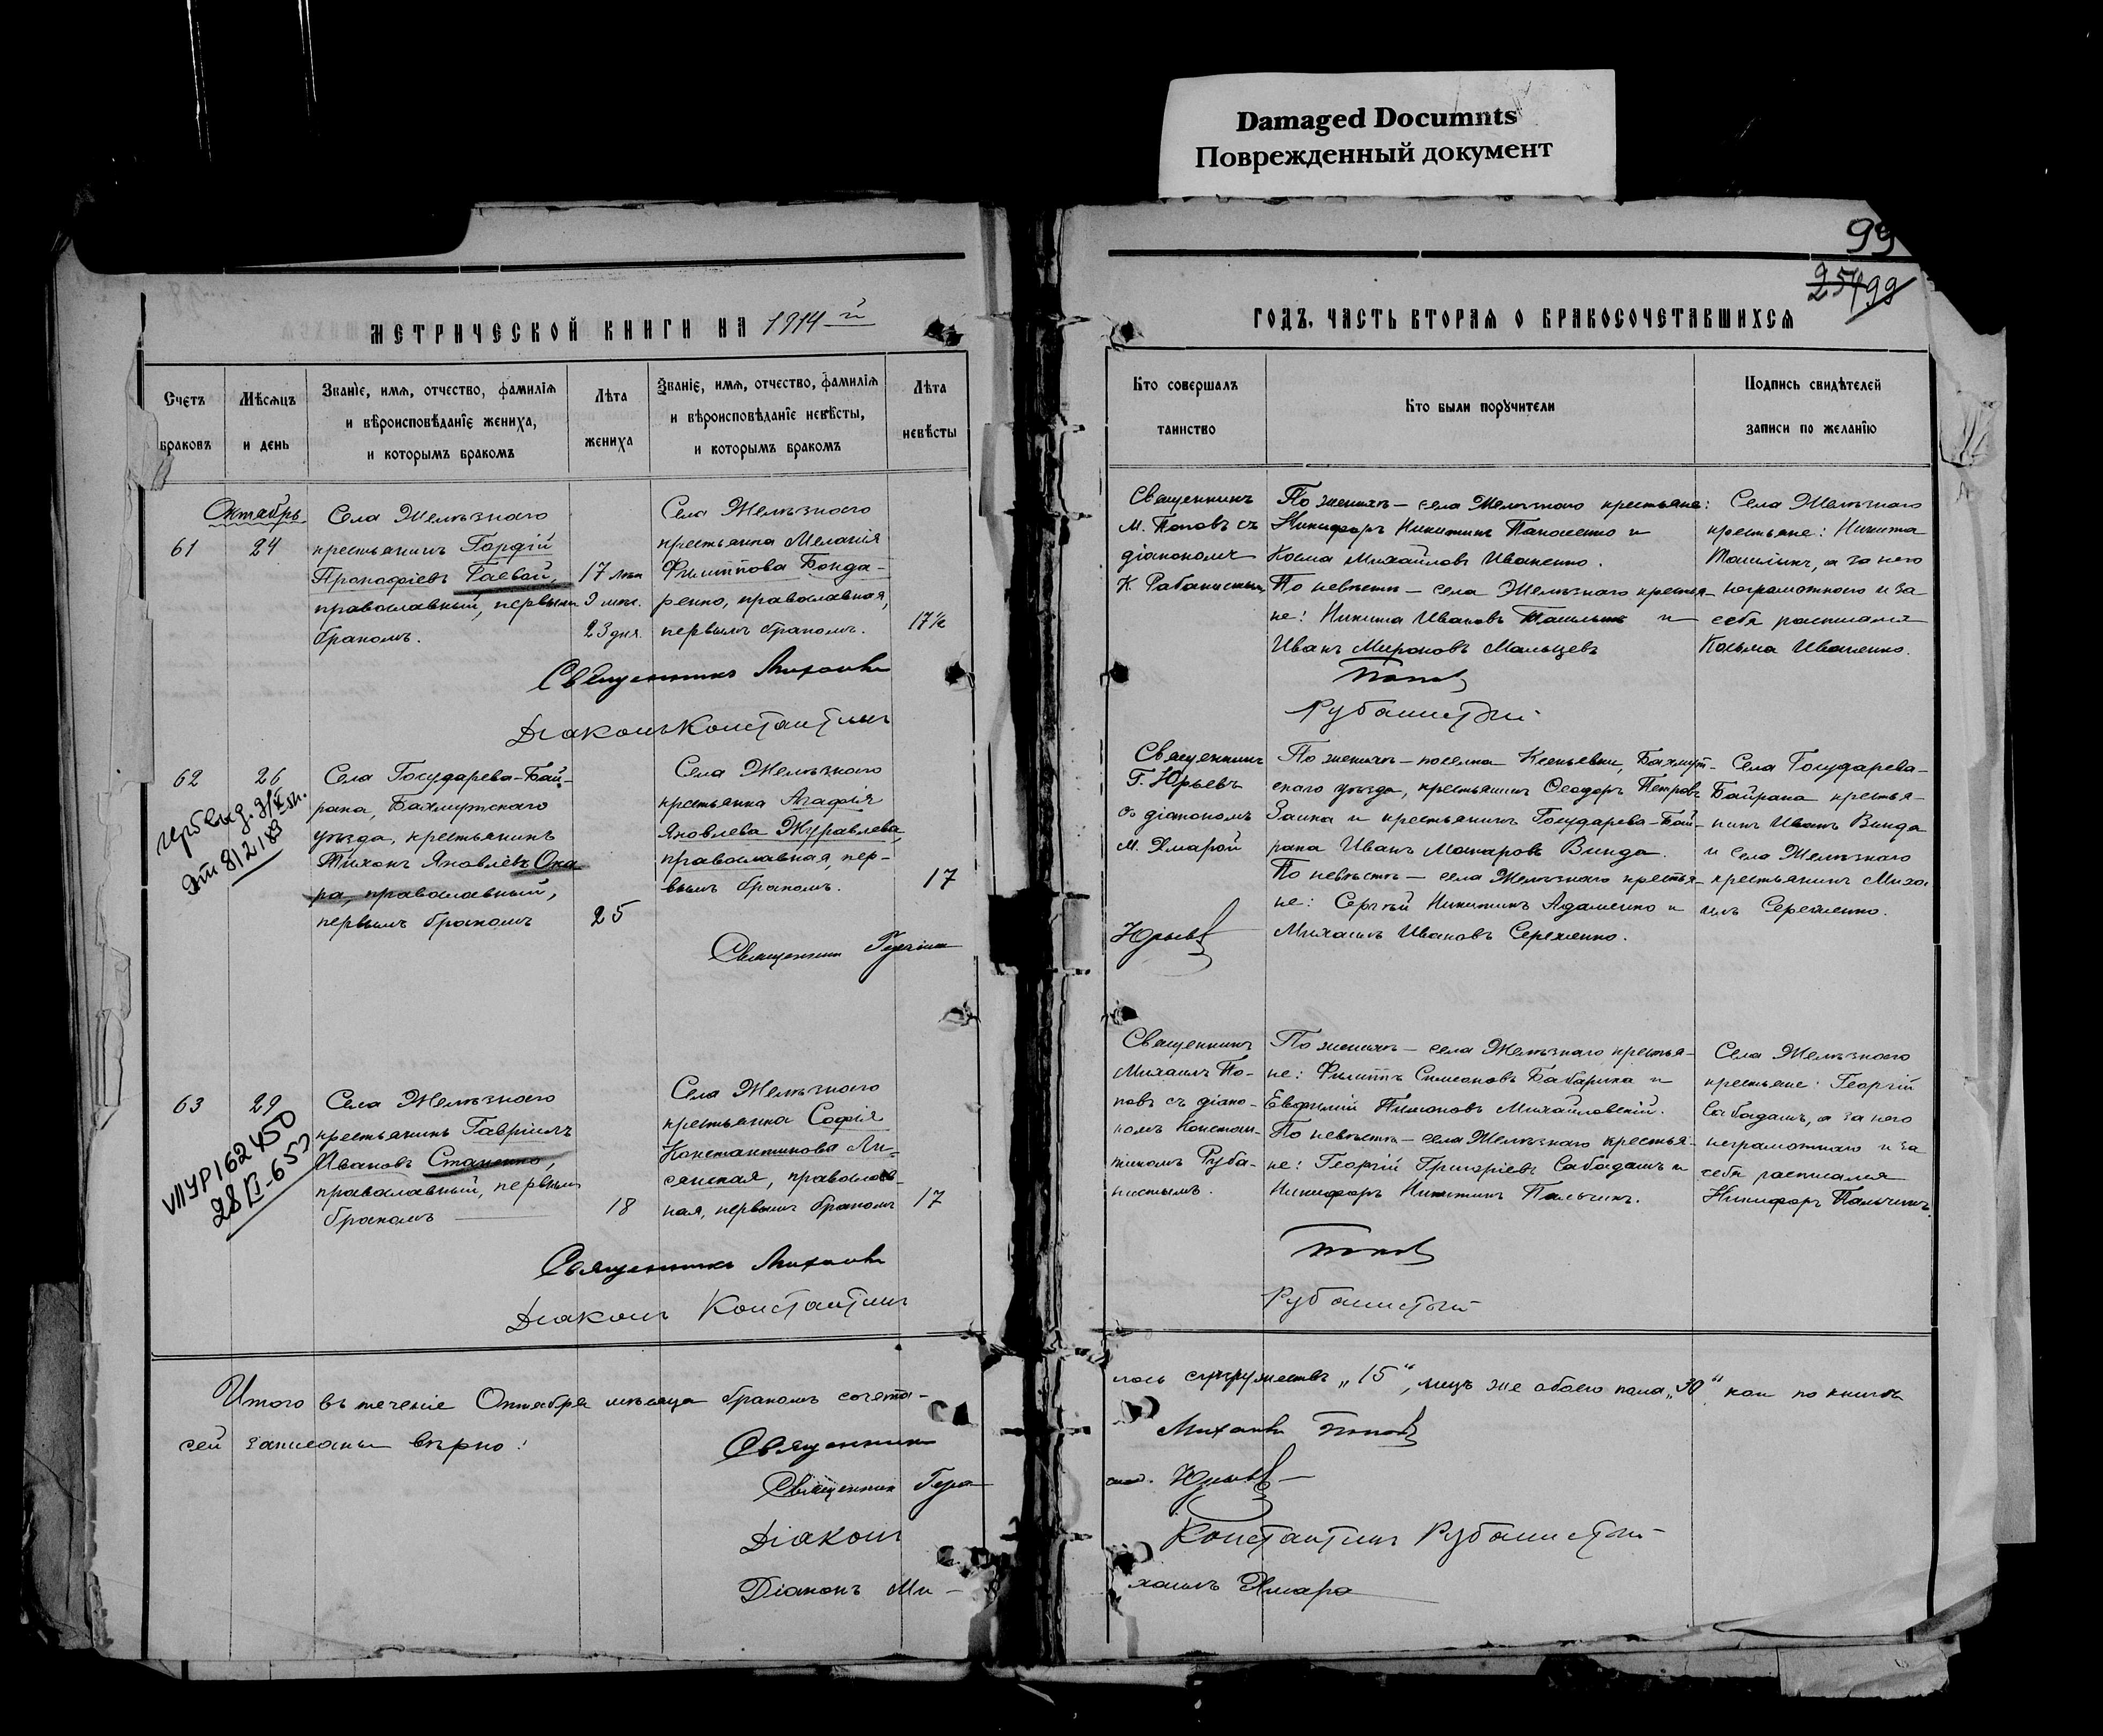 Damaged Documnts
Поврежденный документ
99
254
99
МЕТРИЧЕСКОЙ КНИГИ НА 1914-й
ГОДЪ, ЧАСТЬ ВТОРАЯ О БРАКОСОЧЕТАВШИХСЯ
Счетъ браковъ
Мѣсяцъ и день
Званіе, имя, отчество, фамилія
и вѣроисповѣданіе жениха,
и которымъ бракомъ
Лѣта жениха
Званіе, имя, отчество, фамилія
и вѣроисповѣданіе невѣсты,
и которымъ бракомъ
Лѣта невѣсты
Кто совершалъ таинство
Кто были поручители
Подпись свидѣтелей
записи по желанію
Октябрь
61
24
Села Желѣзнаго
крестьянинъ Гордій
Прокофіевъ Гаевой,
православный, первымъ
бракомъ.
17 лѣтъ
9 мѣс.
23 дня.
Села Желѣзнаго
крестьянка Меланія
Филиппова Бонда-
ренко, православная,
первымъ бракомъ.
17½
Священникъ
М. Поповъ съ
діакономъ
К.
По женихѣ – села Желѣзнаго крестьяне:
Никифоръ Никитинъ и
Косма Михайловъ Иваненко.
По невѣстѣ – села Желѣзнаго крестья-
не: Никита Ивановъ и
Иванъ Мироновъ Мальцевъ
Села Желѣзнаго
крестьяне: Никита
а за него
неграмотнаго и за
себя расписался
Козьма Иваненко.
Священникъ Михаилъ
Поповъ
Діаконъ Константинъ
Рубанистый
62
26
Села Государева-Бай-
рака, Бахмутскаго
уѣзда, крестьянинъ
Тихонъ Яковлевъ Ока
ра, православный,
первымъ бракомъ
25
Села Желѣзнаго
крестьянка Агафія
Яковлева Журавлева,
православная, пер-
вымъ бракомъ.
17
Священникъ
Г. Юрьевъ
съ діакономъ
М. Хмарой
По женихѣ – поселка Ксеньевки, Бахмут-
скаго уѣзда, крестьянинъ Ѳеодоръ Петровъ
Заика и крестьянинъ Государева-Бай-
рака Иванъ Макаровъ Винда.
По невѣстѣ – села Желѣзнаго крестья-
не: Сергѣй Никитинъ Адаменко и
Михаилъ Ивановъ
Села Государева-
Байрака крестья-
нинъ Иванъ Винда
и села Желѣзнаго
крестьянинъ Миха
илъ
Священникъ
Юрьевъ
63
29
VIIУР162450
Села Желѣзнаго
крестьянинъ Гавріилъ
Ивановъ Стаценко,
православный, первымъ
бракомъ
18
Села Желѣзнаго
крестьянка Софія
Константинова Ли-
сянская, православ-
ная, первымъ бракомъ
17
Священникъ
Михаилъ По-
повъ съ діако-
номъ Констан-
тиномъ Руба-
нистымъ.
По женихѣ – села Желѣзнаго крестья-
не: Филиппъ Симеоновъ Бабарика и
Евфимій Пимоновъ Михайловскій.
По невѣстѣ – села Желѣзнаго крестья-
не: Георгій Григоріевъ Сабадашъ и
Никифоръ Никитинъ Пальчикъ.
Села Желѣзнаго
крестьяне: Георгій
Сабадашъ, а за него
неграмотнаго и за
себя расписался
Никифоръ Пальчикъ.
Священникъ Михаилъ
Поповъ
Діаконъ Константинъ
Рубанистый
Итого въ теченіе Октября мѣсяца бракомъ сочета-
лось супружествъ „15“, лицъ же обоего пола „30“ какъ по книгѣ
сей записаны вѣрно:
Священникъ
Михаилъ Поповъ
Священникъ
Юрьевъ
Діаконъ
Константинъ Рубанистый
Діаконъ Ми-
хаилъ Хмара